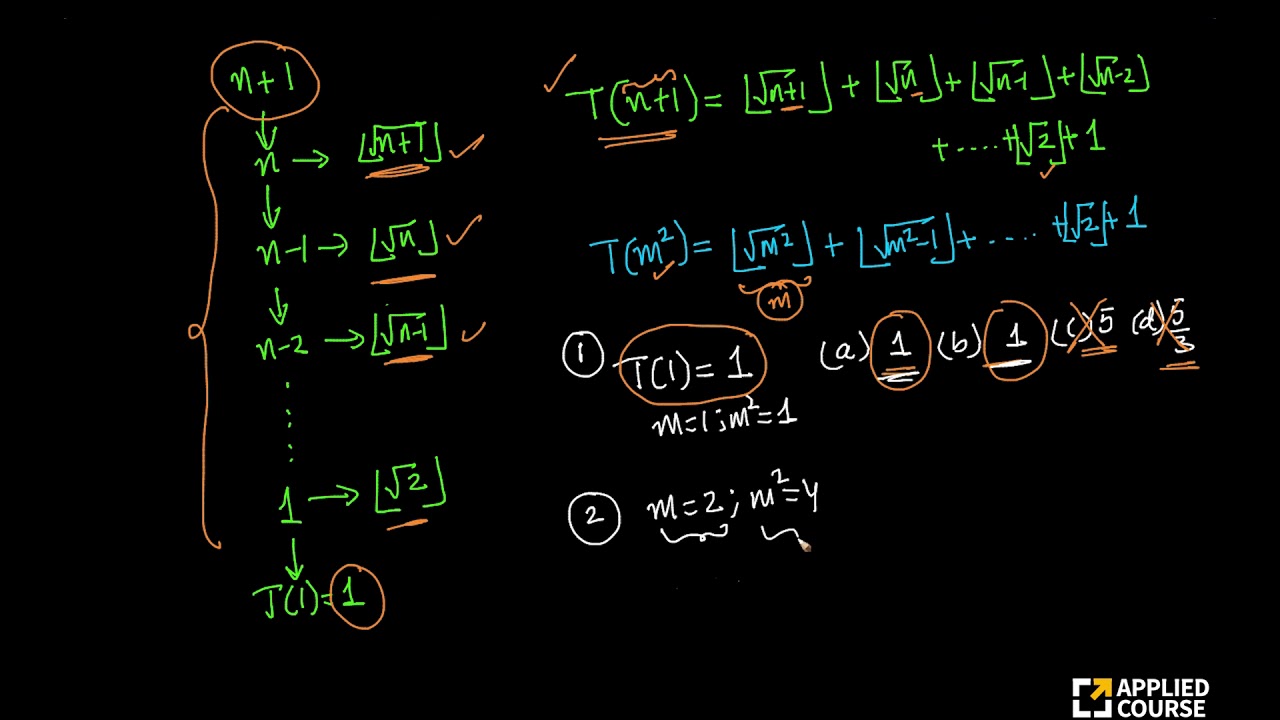 n+1
n → ⌊√n+1⌋
n-1 → ⌊√n⌋
n-2 → ⌊√n-1⌋
1 → ⌊√2⌋
T(1)=1
T(n+1) = ⌊√n+1⌋ + ⌊√n⌋ + ⌊√n-1⌋ + ⌊√n-2⌋
+ .... + ⌊√2⌋ + 1
T(m²) = ⌊√m²⌋ + ⌊√m²-1⌋ + .... + ⌊√2⌋ + 1
m
① T(1) = 1 (a) 1 (b) 1 (c) 5 (d) 5/3
m=1; m²=1
② m=2; m²=4
APPLIED
COURSE